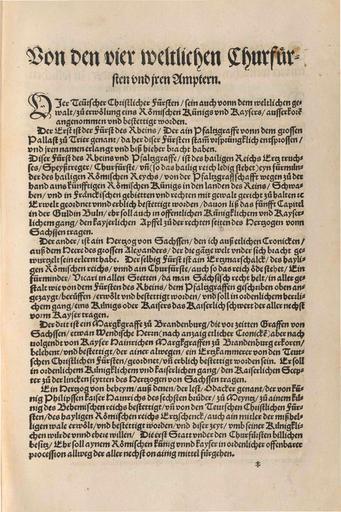 Von den vier weltlichen Churfür-
sten vnd jren Amptern.
DJer Teütscher Christlicher Fürsten / sein auch vonn dem weltlichen ge-
walt / zu erwölung eins Römischen Künigs vnd Kaysers / ausserkorē
angenommen vnd bestettiget worden.
Der Erst ist der Fürst des Rheins / Der ain Pfaltzgraffe vonn dem grossen
Pallast zu Trier genant / da her diser Fürsten stam̄ vrsprüncklich entsprossen /
vnd jren namen erlangt vnd biß hieher bracht haben.
Diser Fürst des Rheins vnd Pfaltzgraffe / ist des hailigen Reichs Ertz truch-
ses /
des hailigen Römischen Reychs / von der Pfaltzgraffschafft wegen zu der
hand ains künfftigen Römischen Künigs in den landen des Reins / Schwa-
ben / vnd in Frenckischen gebietten vnd rechten mit gewalt gerecht zu halten ic
Erwelt geordnet vnnd erblich bestettiget worden / dauon liß das fünfft Capitel
in der Guldin Buln / der soll auch in offenlichen Künigklichem vnd Kayser-
lichem gang / den kayserlichen Apffel zu der rechten seiten des Hertzogen vom
Sachssen tragen.
Der ander / ist ain Hertzog von Sachssen / den ich auß etlichen Cronicken /
auß dem Heer des grossen Alexanders / der die gegēt weyt vnder sich bracht ge-
wurtzelt sein erlernt habe. Der selbig Fürst ist am Ertzmarschalck / des hayli-
gen Römischen reichs / vnnd ain Churfürste / auch so das reich ödt stehet / Ein
fürminder / Vicari in allen Stetten da man Sächsisch recht helt / in aller ge-
stalt wie von dem Fürsten des Rheins / dem Pfaltzgraffen geschriben oben an-
gezaygt / berüffen / erwölt vnd bestettiget worden / vnd soll in ordenlichem kuni-
lichem gang / eins Künigs oder Kaysers das Kaiserlich schwert der aller nechst
vorm Kayser tragen.
Der drit ist ein Marggraffe zu Brandenburg / die vor zeitten Graffen von
Sachssen / etwan Wendische Herrn / nach anzaig etlicher Cronick / aber nach
uolgends von Kayser Hainrichen Marggraffen zu Brandenburg erkorn /
belehent / vnd bestettiget / der ainer alwegen / ein Ertzkammerer von den Teut-
schen Christlichen Fürsten / geordnet / vn̄ erblich bestettiget worden sein. Er soll
in ordenlichem Künigklichem vnd kaiserlicher gang / den Kaiserlichen Scep-
ter zu der lincken seytten des Hertzogen von Sachssen tragen.
Ein Hertzog von beheym / auß denen / der lest Odacker genant / der von kü-
nig Philipssen kaiser Hainrichs des sechsten bruder / zu Meyntz / zu ainem kü-
nig des Behemischen reichs bestettiget / vn̄ von den Teutschen Christlichen Für-
sten / des hayligen Römischen reichs Ertzschenck / auch ain mitler der mißhel-
ligen wale erwölt / vnd bestettiget worden / vnd diser zeyt / vmb seiner Künigkli-
chen wirde vnnd ehre willen / Die erst Statt vnder den Churfürsten billichen
besitz / Ehr soll aynem Römischen künig vnnd Kayser in ordenlicher offenbarer
procession allweg der aller nechst on ainig mittel fürgehen.
*